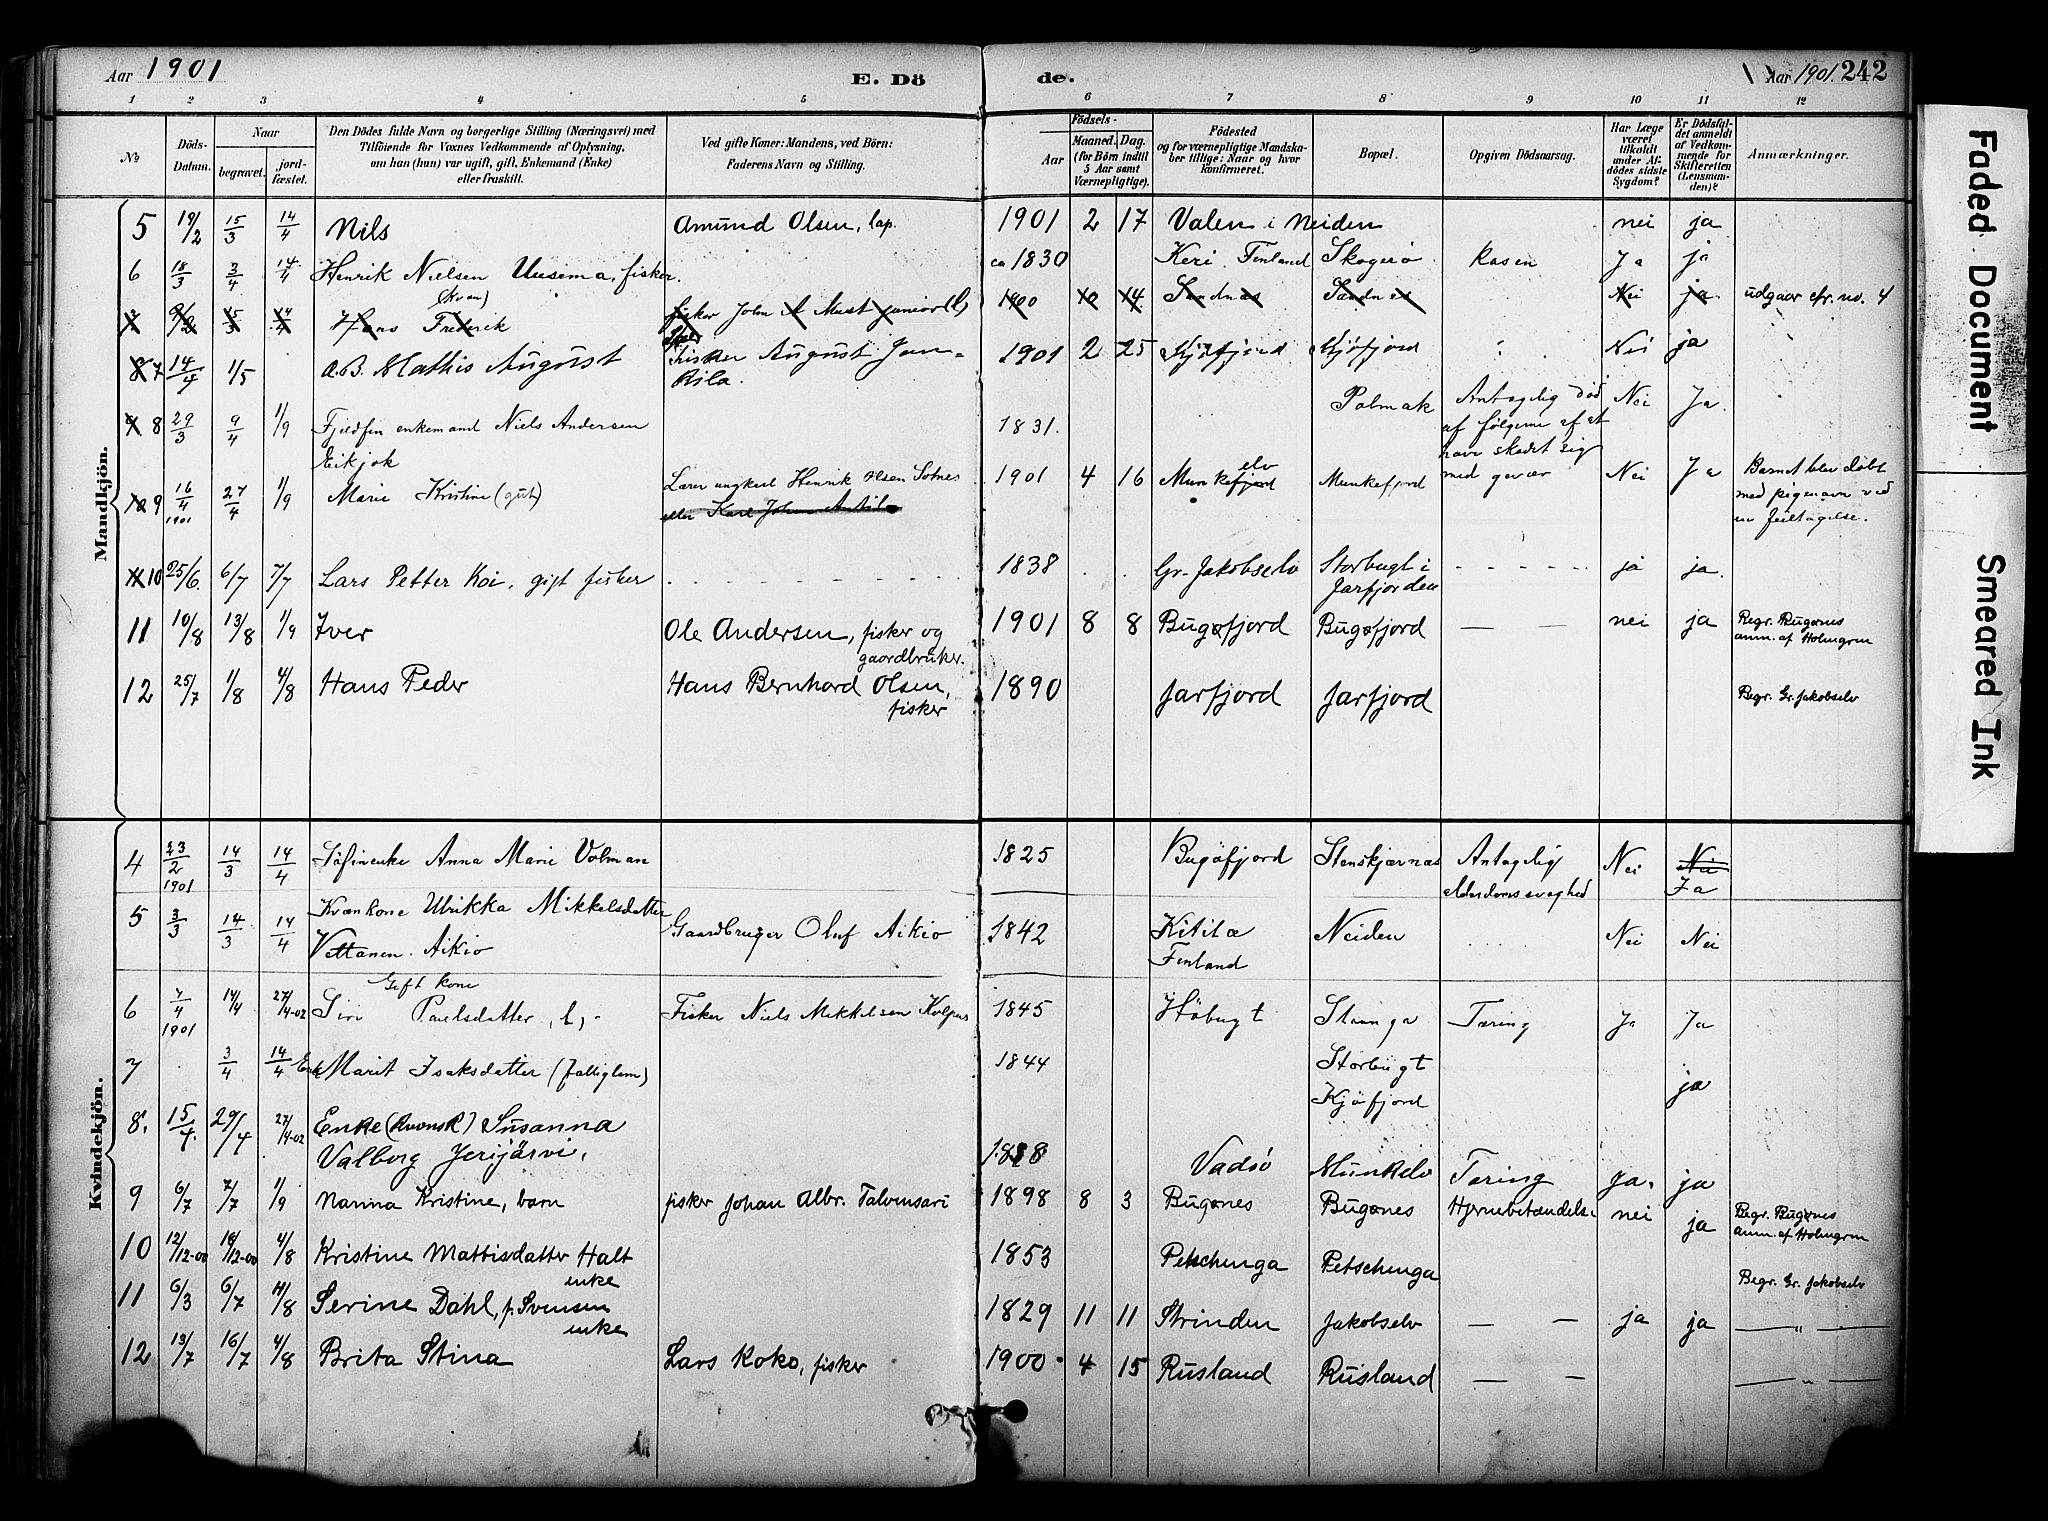 Aar 1901
E. Dö
de.
Aar 1901. 242
1 2 3 4 5 6 7 8 9 10 11 12
No
Döds-Datum.
Naar
begravet.
jord-fæstet.
Den Dödes fulde Navn og borgerlige Stilling (Næringsvei) med
Tilföiende for Voxnes Vedkommende af Oplysning,
om han (hun) var ugift, gift, Enkemand (Enke)
eller fraskilt.
Ved gifte Koner: Mandens, ved Börn:
Faderens Navn og Stilling.
Födsels-
Aar
Maaned. Dag.
(for Börn indtil
5 Aar samt
Værnepligtige).
Födested
og for værnepligtige Mandska-
ber tillige: Naar og hvor
konfirmeret.
Bopæl.
Opgiven Dödsaarsag.
Har Læge
været
tilkaldt
under Af-
dödes sidste
Sygdom?
Er Dödsfal-
det anmeldt
af Vedkom-
mende for
Skifteretten
(Lensman-
den)?
Anmærkninger.
Mandkjön.
5 19/2 15/3 14/4 Nils Amund Olsen, lap. 1901 2 17 Valen i Neiden nei ja
6 18/3 3/4 14/4 Henrik Nielsen Uusima, fisker. ca 1830 Keri Finland Skogerø Ja ja
(kvan)
Hans Frederik fisker John Must junior (l) 1900 14 Sandnæs Sandnes Nei ja. udgaar cfr. no. 4
7 14/4 1/5 Mathis August fisker August Jan- 1901 2 25 Kjøfjord Kjøfjord Nei ja
Rila.
8 29/3 9/4 1/9 Fjeldfin enkemand Niels Andersen 1831. Polmak Antagelig død Nei Ja.
Eikjok
af følgerne af at
have skadet sig
med gevær
9 16/4 1901 27/4 1/9 Marie Kristine (gut) Lærer ungkarl Henrik Olsen Sotnes 1901 4 16 Munkefjord elv Munkefjord Nei Ja Barnet blev døbt
eller Karl Johan Antila
med pigenavn ved
en feiltagelse.
10 25/6. 6/7 7/7 Lars Petter Koi, gift fisker 1838 Gr-Jakobselv Storbugt i ja ja.
Jarfjorden
11 10/8 13/8 1/9 Iver Ole Andersen, fisker og 1901 8 8 Bugøfjord Bugøfjord — — nei ja Begr. Bugønes
gaardbruker.
anm. af Holmgren
12 25/7 1/8 4/8 Hans Peder Hans Bernhard Olsen, 1890 Jarfjord Jarfjord Begr. Gr. Jakobselv
fisker
Kvindekjön.
4 23/2 1901 14/3 14/4 Søfinenke Anna Marie Volman 1825 Bugøfjord Stenskjærnæs Antagelig Nei Nei
alderdomssvaghed
Ja
5 3/3 14/3 14/4 Kvænkone Ulrikka Mikkelsdatter Gaardbruger Oluf Aikio 1842 Kitila Neiden Nei Nei
Vettanen. Aikio
Finland
Gift kone
6 7/4 1901 14/4 27/4-02 Siri Paulsdatter, l, - Fisker Niels Mikkelsen Kolpus 1845 Høbugt Stanga Tæring Ja Ja
7 3/4 14/4 Enke Marit Isaksdatter (fattiglem) 1844 Storbugt ja
Kjøfjord
8. 15/4. 29/4 27/4-02 Enke (kvensk) Susanna
Valborg Jerijärvi, Vadsø Munkelv Tæring Ja. ja
9 6/7 7/7 1/9 Nanna Kristine, barn fisker Johan Albr. Talvensari 1898 8 3 Bugønes Bugønes Hjernebetændelse nei ja Begr. Bugønes
anm. af Holmgren
10 12/12-00 18/12-00 4/8 Kristine Mattisdatter Halt 1853 Petschenga Petschenga Begr. Gr. Jakobselv
enke
11 6/3 6/7 4/8 Serine Dahl, f. Svensen 1829 11 11 Strinden Jakobselv — — ja ja — " —
enke
12 13/7 16/7 4/8 Brita Stina Lars Koko, fisker 1900 4 15 Rusland Rusland — — — " —
Faded Document
Smeared Ink